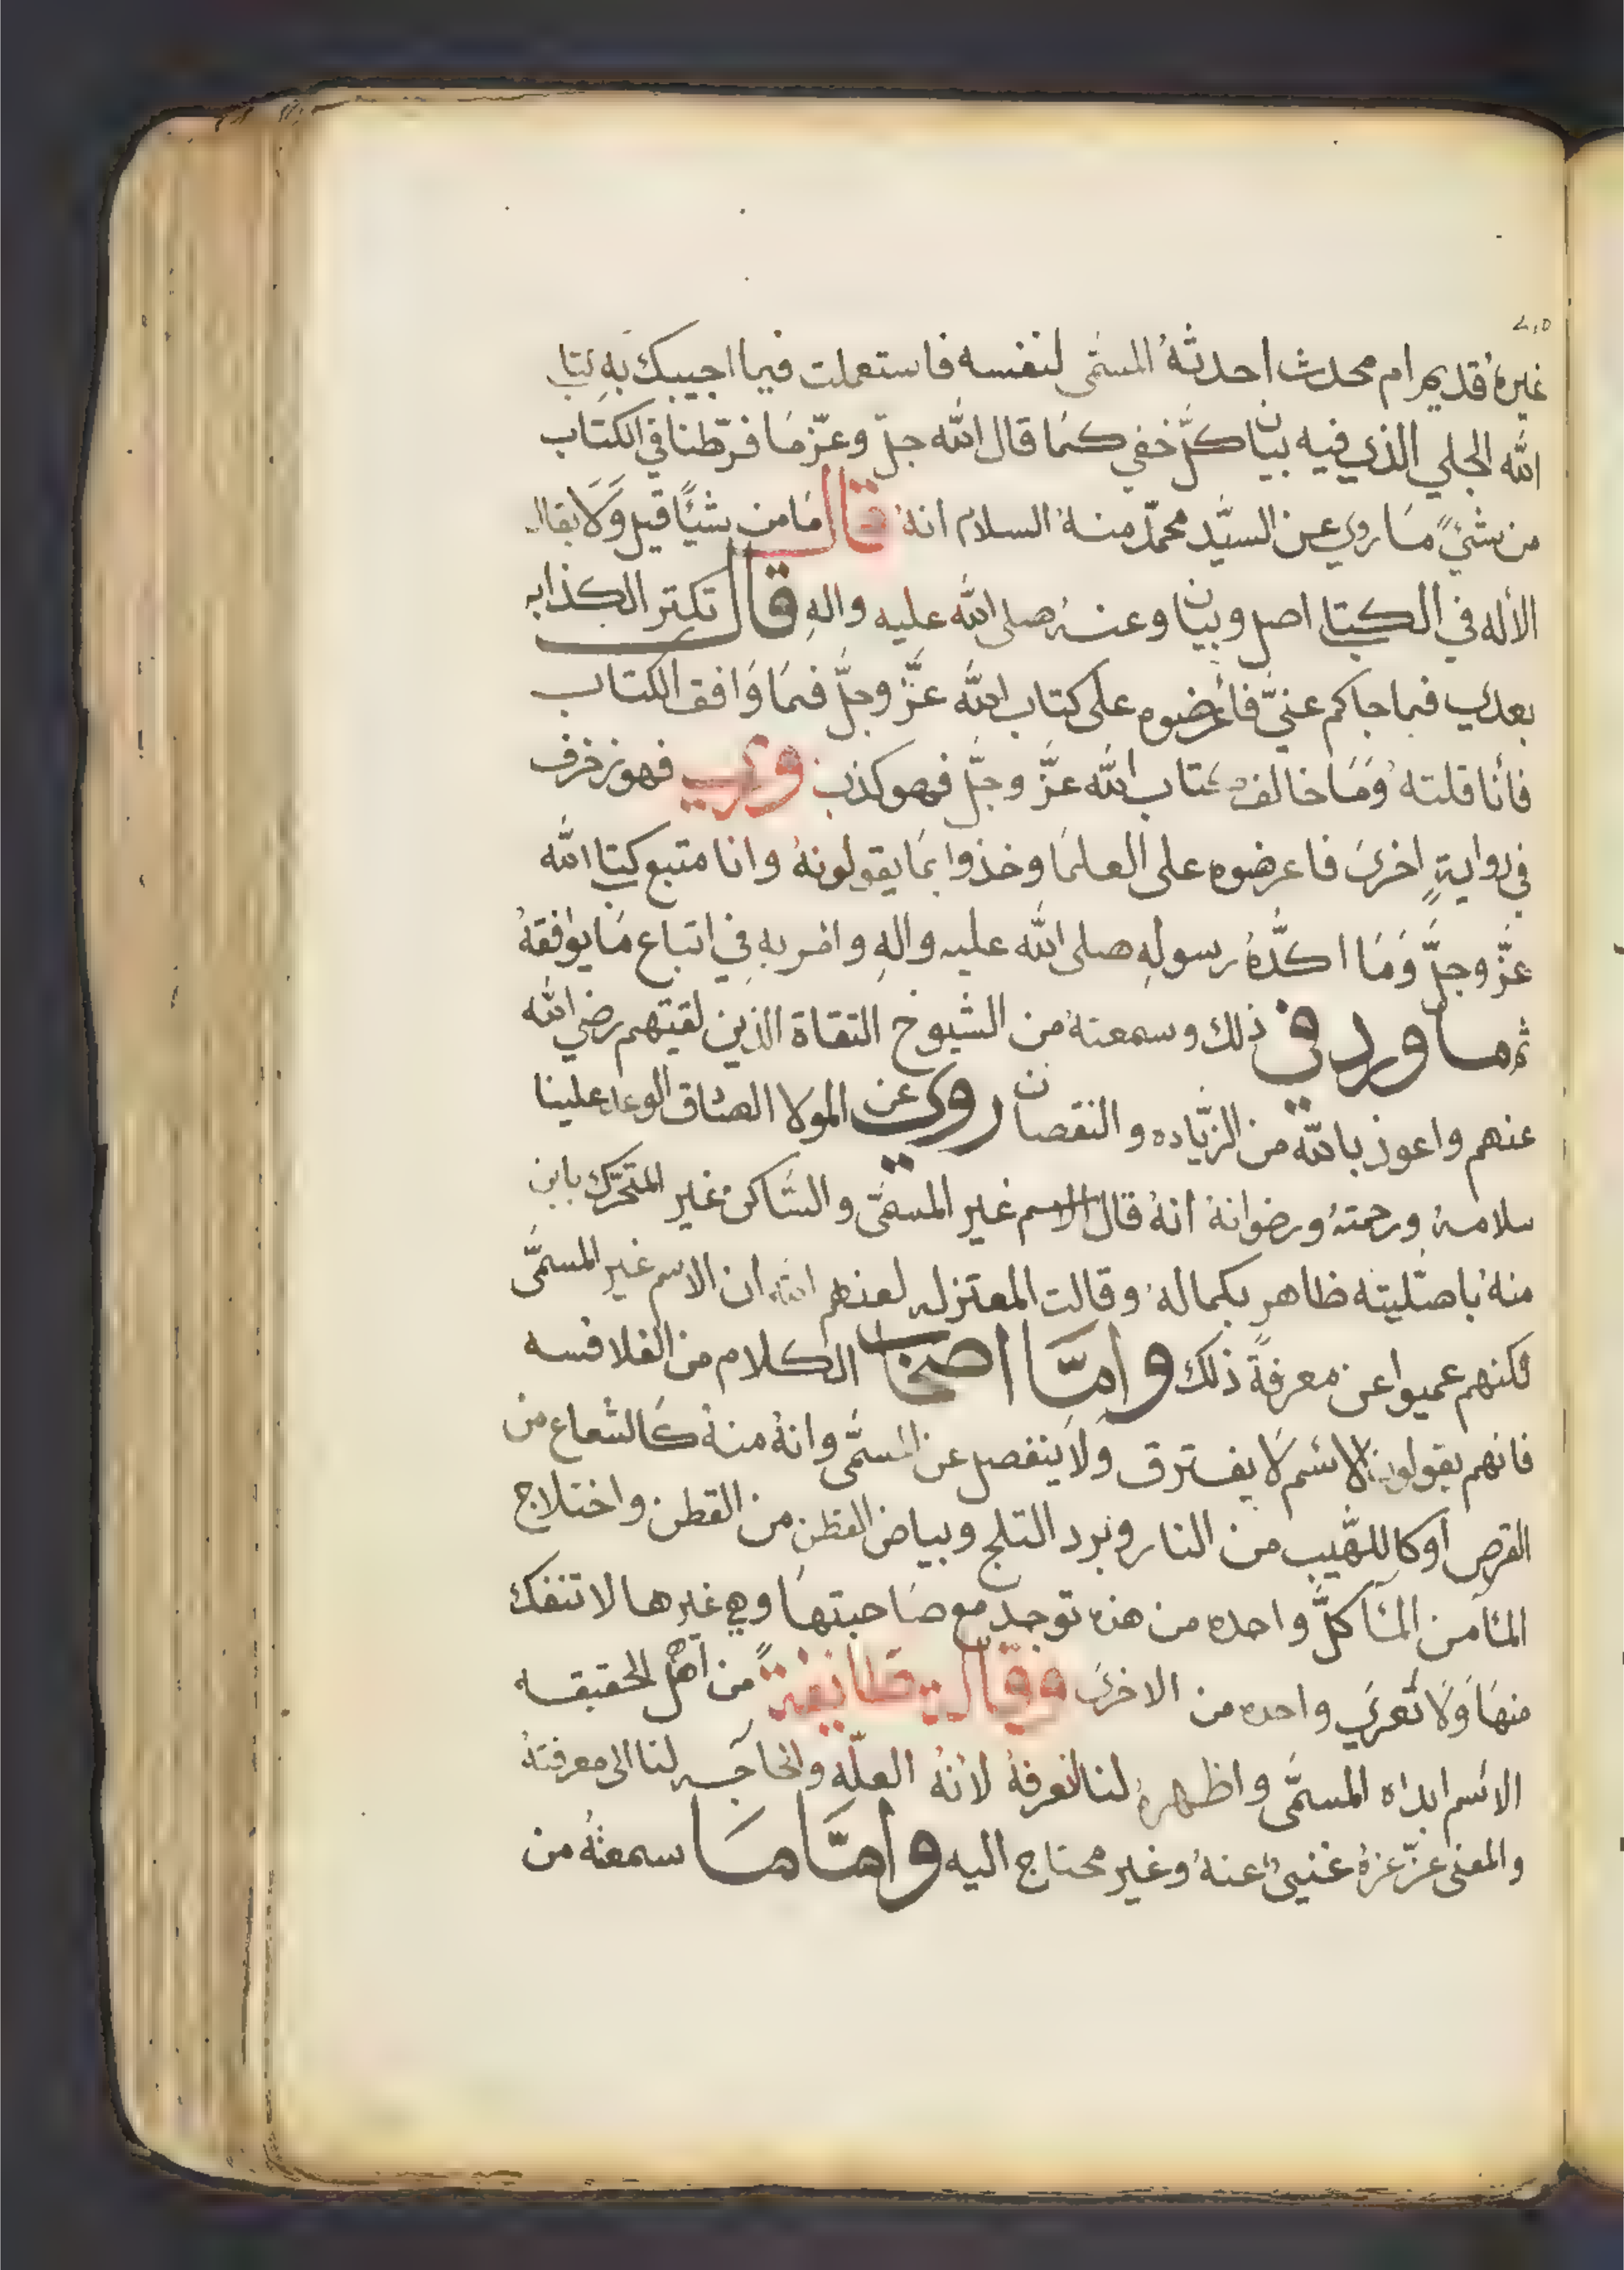 ٢١٥
غيره قديم ام محدث احدثهُ المسمّى لنفسه فاستعملت فيما اجيبك بهِ كتاب
الله الجلي الذي فيه بيان كلّ خفي كمَا قال الله جلّ وعزّ مَا فرّطنا في الكتاب
من شيءٍ مَا روي عن السيّد محمّد منهُ السلام انهُ قال مَا من شيئًا قيل وَلَا يقال
الأله في الكتاب اصل وبيان وعنهُ صلى الله عليه والهِ قال تكتر الكذابه
بعدي فما جاكم عنيّ فأعرضوه على كتاب الله عزَّ وجلَّ فمَا وَافق الكتاب
فأنا قلتهُ وَمَا خالف كتاب الله عزَّ وجلَّ فهو كذب وروي فهو زخرف
في روايةٍ اخرىَ فاعرضوه على العلمَا وخذوا بمَا يقولونهُ وانا متبع كتاب الله
عزَّ وجلَّ وَمَا اكدَّهُ رسولهِ صلى الله عليه والهِ وامر بهِ في اتباع مَا يوافقهُ
ثم ما ورد في ذلك وسمعتهُ من الشيوخ التقاة الذين لقيتهم رضي الله
عنهم واعوذ بالله من الزيّاده والنقصان روي عن المولا الصادق الوعد علينا
سلامهُ ورحمتهُ ورضوانهُ انهُ قال الاسم غير المسمّى والسّاكن غير المتحرّك باين
منهُ باصّليته ظاهر بكمالهُ وقالت المعتزله لعنهم الله ان الاسم غير المسمَّى
لكنهم عميوا عن معرفةً ذلك وامّا اصحاب الكلام من الفلافسه
فانهم يقولون الاسم لَا يفترق ولَا ينفصل عن المسمَّى وانهُ منهُ كَالشعاع من
القرص أوكاللهّيب من النار وبرد التلج وبياض القطن من القطن واختلاج
المَا من المَا كلَّ واحده من هذه توجد مع صَاحبتهَا وهي غيرها لا تنفك
منهَا وَلَا تعري واحده من الاخرىَ وقالت طايفةً من اهل الحقيقه
الاسم ابداه المسمَّى واظهرهُ لنا لنعرفهُ لأنهُ العلّه والحَاجه لنا الى معرفتهُ
والمعنى عزّ عزهُ غنيىٌ عنهُ وغير محتاج اليه وامَّا مَا سمعتهُ من